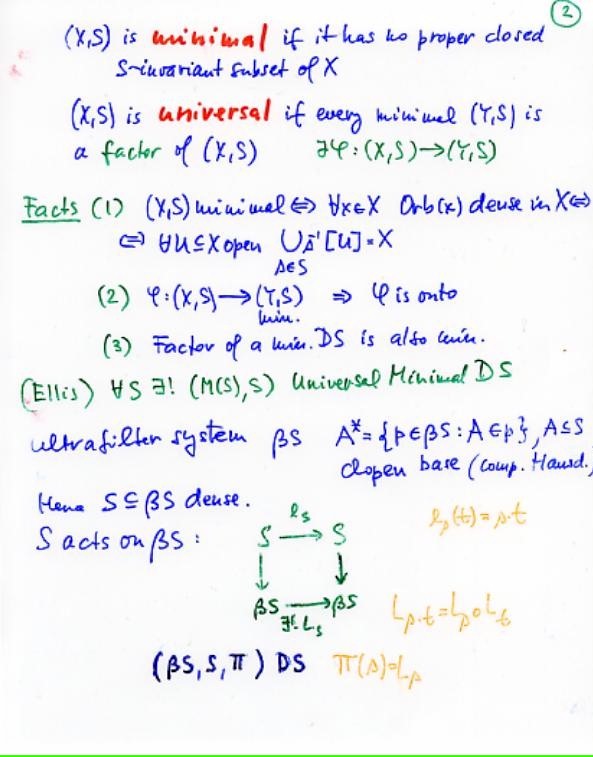 2
(X,S) is minimal if it has no proper closed
S-invariant subset of X
(X,S) is universal if every minimal (Y,S) is
a factor of (X,S) ∃φ:(X,S)→(Y,S)
Facts (1) (X,S) minimal ⇔ ∀x∈X Orb(x) dense in X ⇔
⇔ ∀U⊆X open ⋃ s⁻¹[U]=X
s∈S
(2) φ:(X,S)→(Y,S) ⇒ φ is onto
min.
(3) Factor of a min. DS is also min.
(Ellis) ∀S ∃! (M(S),S) Universal Minimal DS
ultrafilter system βS A*={p∈βS : A∈p}, A⊆S
clopen base (comp. Hausd.)
Hence S⊆βS dense.
S acts on βS :
S → S
ℓs
ℓs(t)=s·t
βS → βS
∃! Ls
Ls·t=Ls∘Lt
(βS,S,π) DS π(s)=Ls